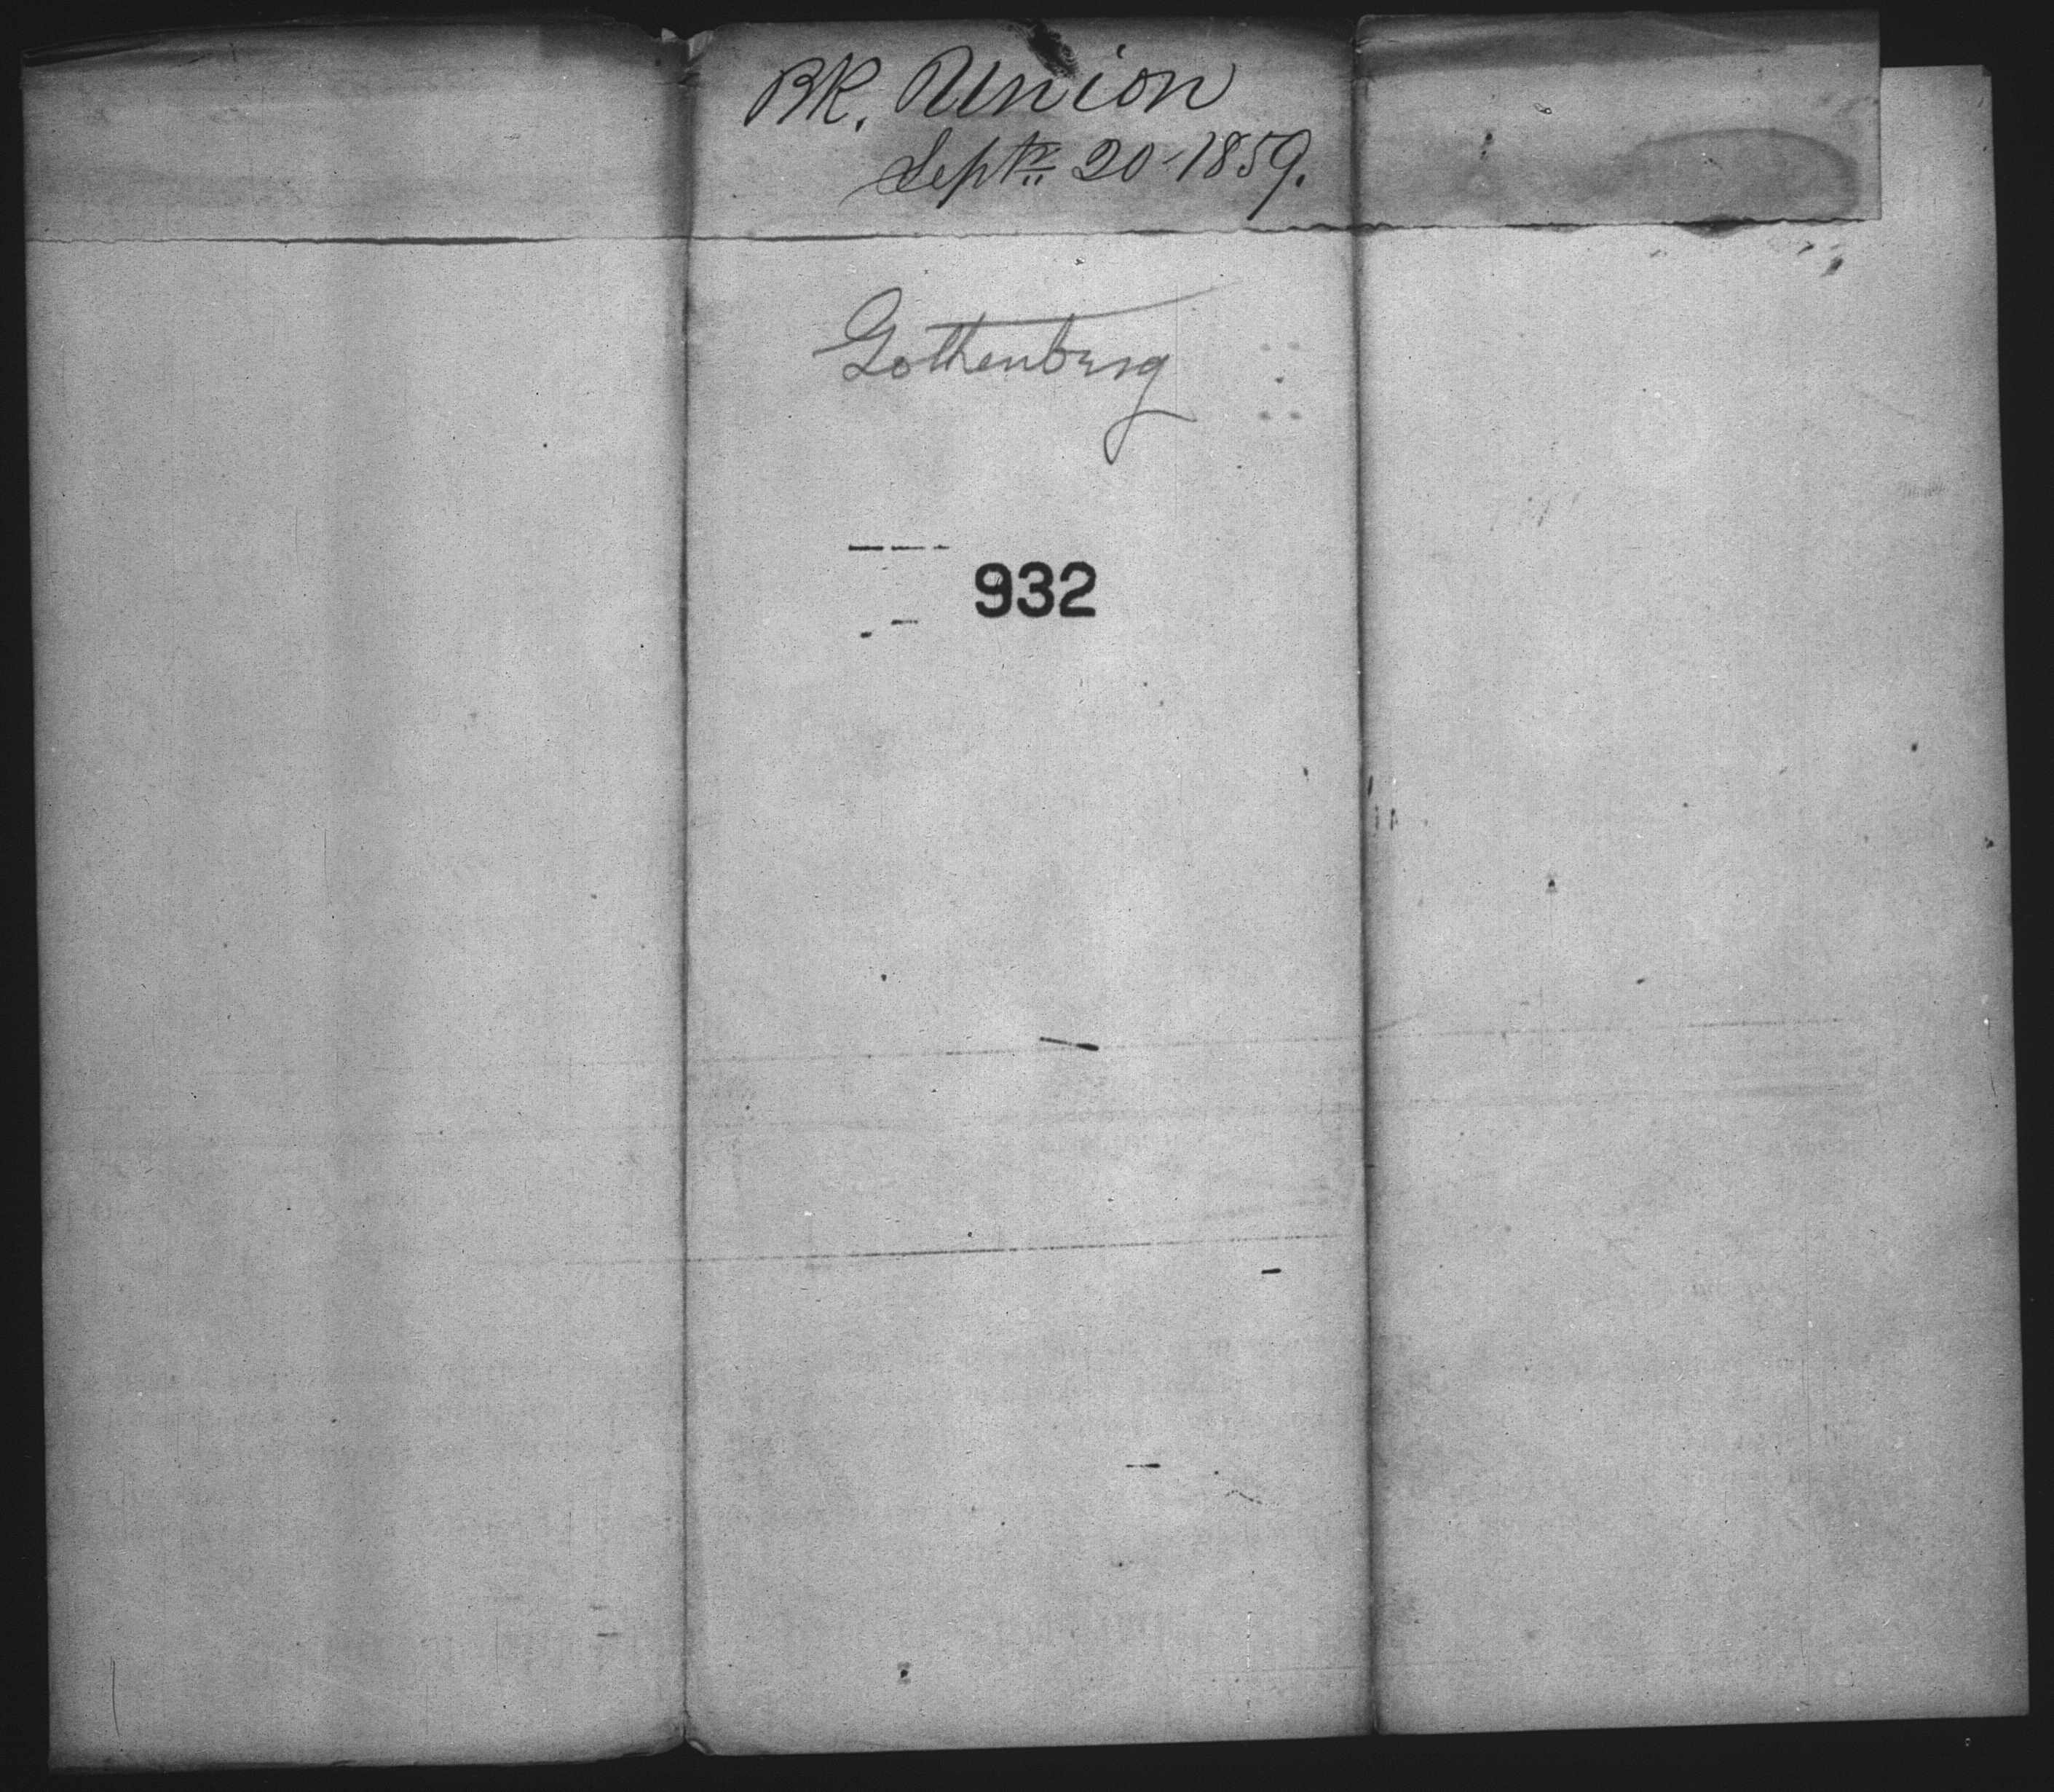 Bk. Union
Septr. 20-1859.
Gothenburg
932